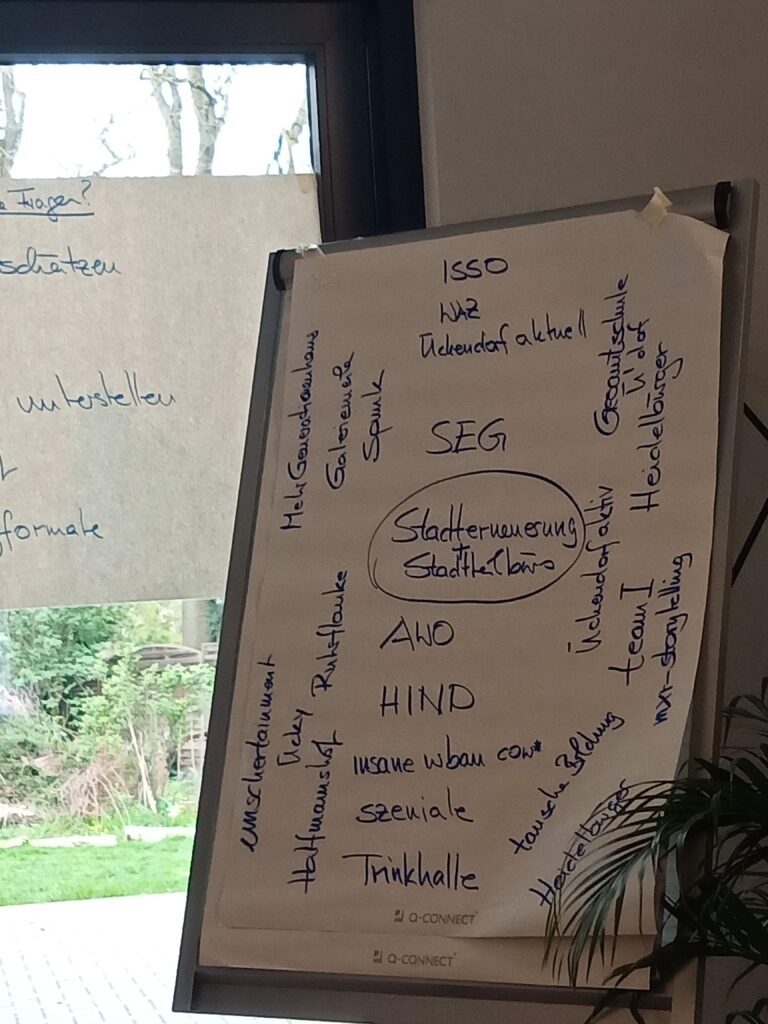 Fragen?
schätzen
unterstellen
formate
ISSO
WAZ
Ückendorf aktuell
SEG
Stadterneuerung
+
Stadtteilbüro
AWO
HIND
insane urban cow*
szeniale
Trinkhalle
MehrGenerationenhaus
Galeriemeile
Spunk
Ruhrflanke
emschertainment
Ücky
Halfmannshof
Gesamtschule
Ü'dorf
Heidelbürger
Ückendorf aktiv
team I
mxr-storytelling
Bildung
Heidelbürger
Q-CONNECT
Q-CONNECT